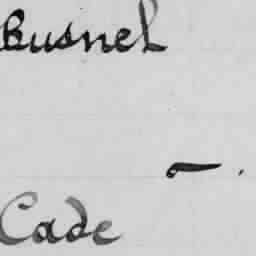 Busnel
-.
Cade